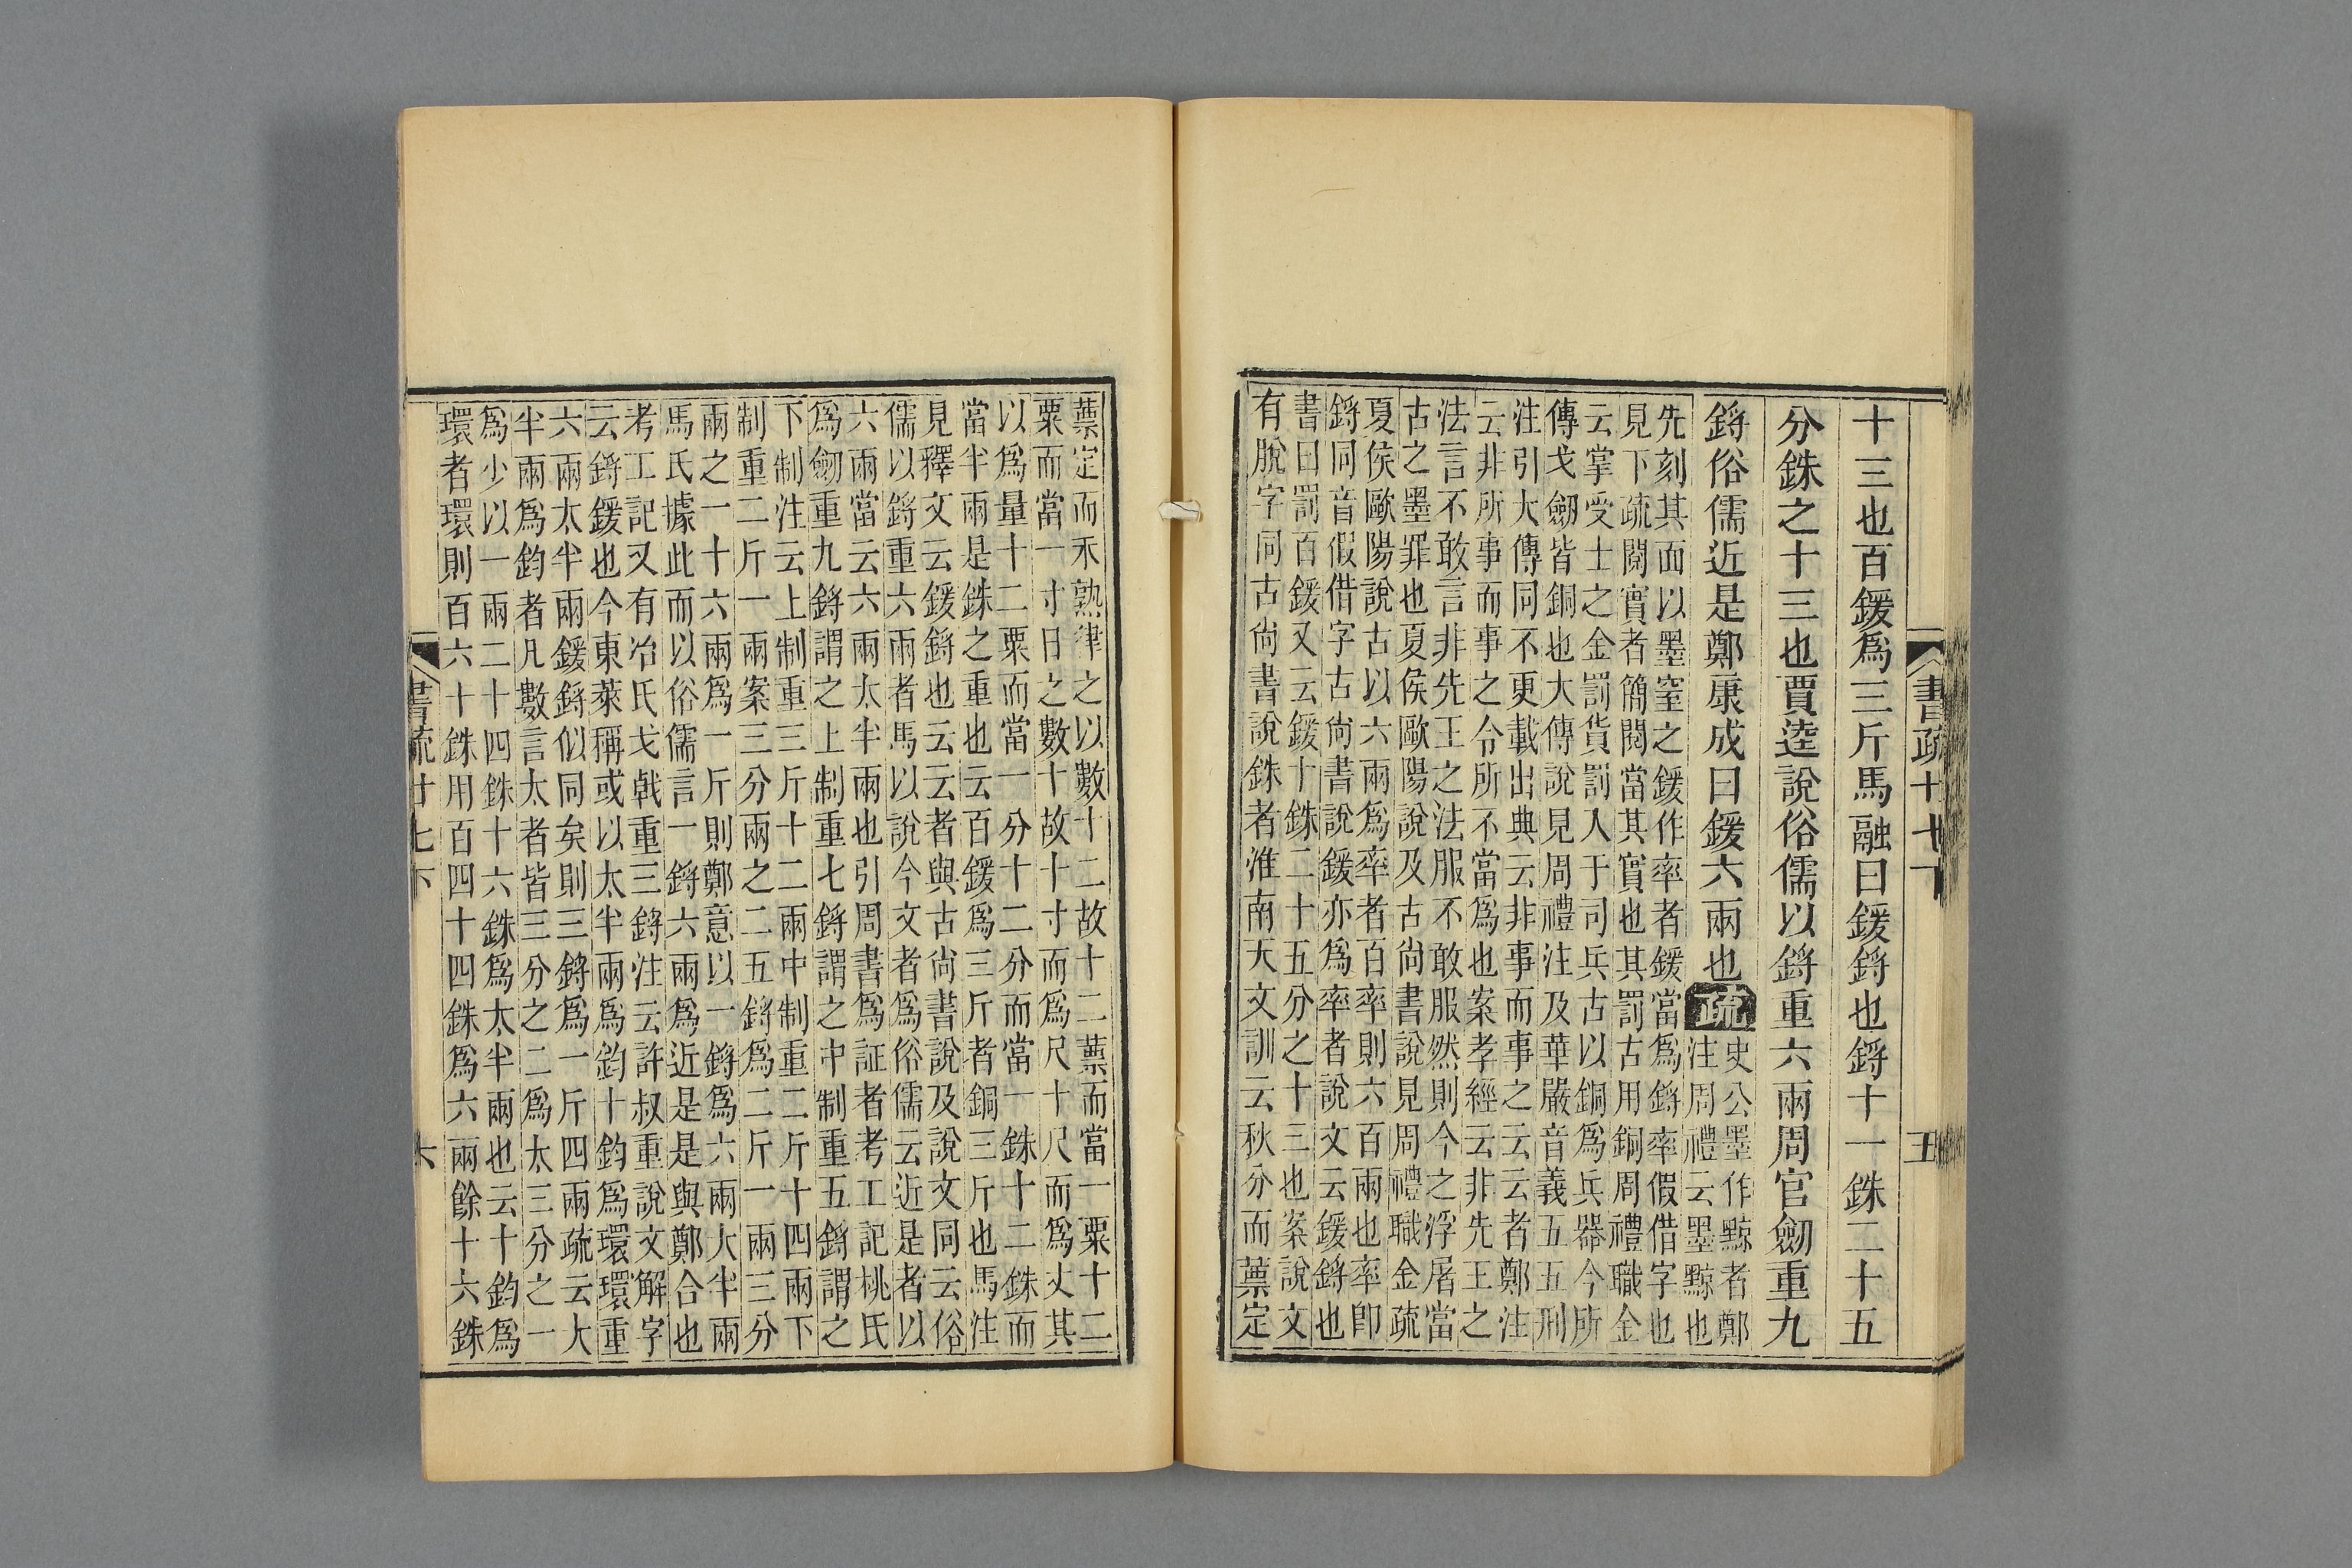 書疏廿七下 五
十三也百鍰爲三斤馬融曰鍰鋝也鋝十一銖二十五
分銖之十三也賈逵說俗儒以鋝重六兩周官劒重九
鋝俗儒近是鄭康成曰鍰六兩也疏史公墨作黥者鄭
注周禮云墨黥也
先刻其面以墨窒之鍰作率者鍰當爲鋝率假借字也
見下疏閱實者簡閱當其實也其罰古用銅周禮職金
云掌受士之金罰貨罰入于司兵古以銅爲兵器今所
傳戈劒皆銅也大傳說見周禮注及華嚴音義五五刑
注引大傳同不更載出典云非事而事之云云者鄭注
云非所事而事之令所不當爲也案孝經云非先王之
法言不敢言非先王之法服不敢服然則今之浮屠當
古之墨罪也夏侯歐陽說及古尚書說見周禮職金疏
夏侯歐陽說古以六兩爲率者百率則六百兩也率卽
鋝同音假借字古尚書說鍰亦爲率者說文云鍰鋝也
書曰罰百鍰又云鍰十銖二十五分之十三也案說文
有脫字同古尚書說銖者淮南天文訓云秋分而蔈定
蔈定而禾熟律之以數十二故十二蔈而當一粟十二
粟而當一寸日之數十故十寸而爲尺十尺而爲丈其
以爲量十二粟而當一分十二分而當一銖十二銖而
當半兩是銖之重也云百鍰爲三斤者銅三斤也馬注
見釋文云鍰鋝也云云者與古尚書說及說文同云俗
儒以鋝重六兩者馬以說今文者爲俗儒云近是者以
六兩當云六兩太半兩也引周書爲証者考工記桃氏
爲劒重九鋝謂之上制重七鋝謂之中制重五鋝謂之
下制注云上制重三斤十二兩中制重二斤十四兩下
制重二斤一兩案三分兩之二五鋝爲二斤一兩三分
兩之一十六兩爲一斤則鄭意以一鋝爲六兩大半兩
馬氏據此而以俗儒言一鋝六兩爲近是是與鄭合也
考工記又有冶氏戈戟重三鋝注云許叔重說文解字
云鋝鍰也今東萊稱或以太半兩爲鈞十鈞爲環環重
六兩太半兩鍰鋝似同矣則三鋝爲一斤四兩疏云大
半兩爲鈞者凡數言太者皆三分之二爲太三分之一
爲少以一兩二十四銖十六銖爲太半兩也云十鈞爲
環者環則百六十銖用百四十四銖爲六兩餘十六銖
書疏廿七下 六